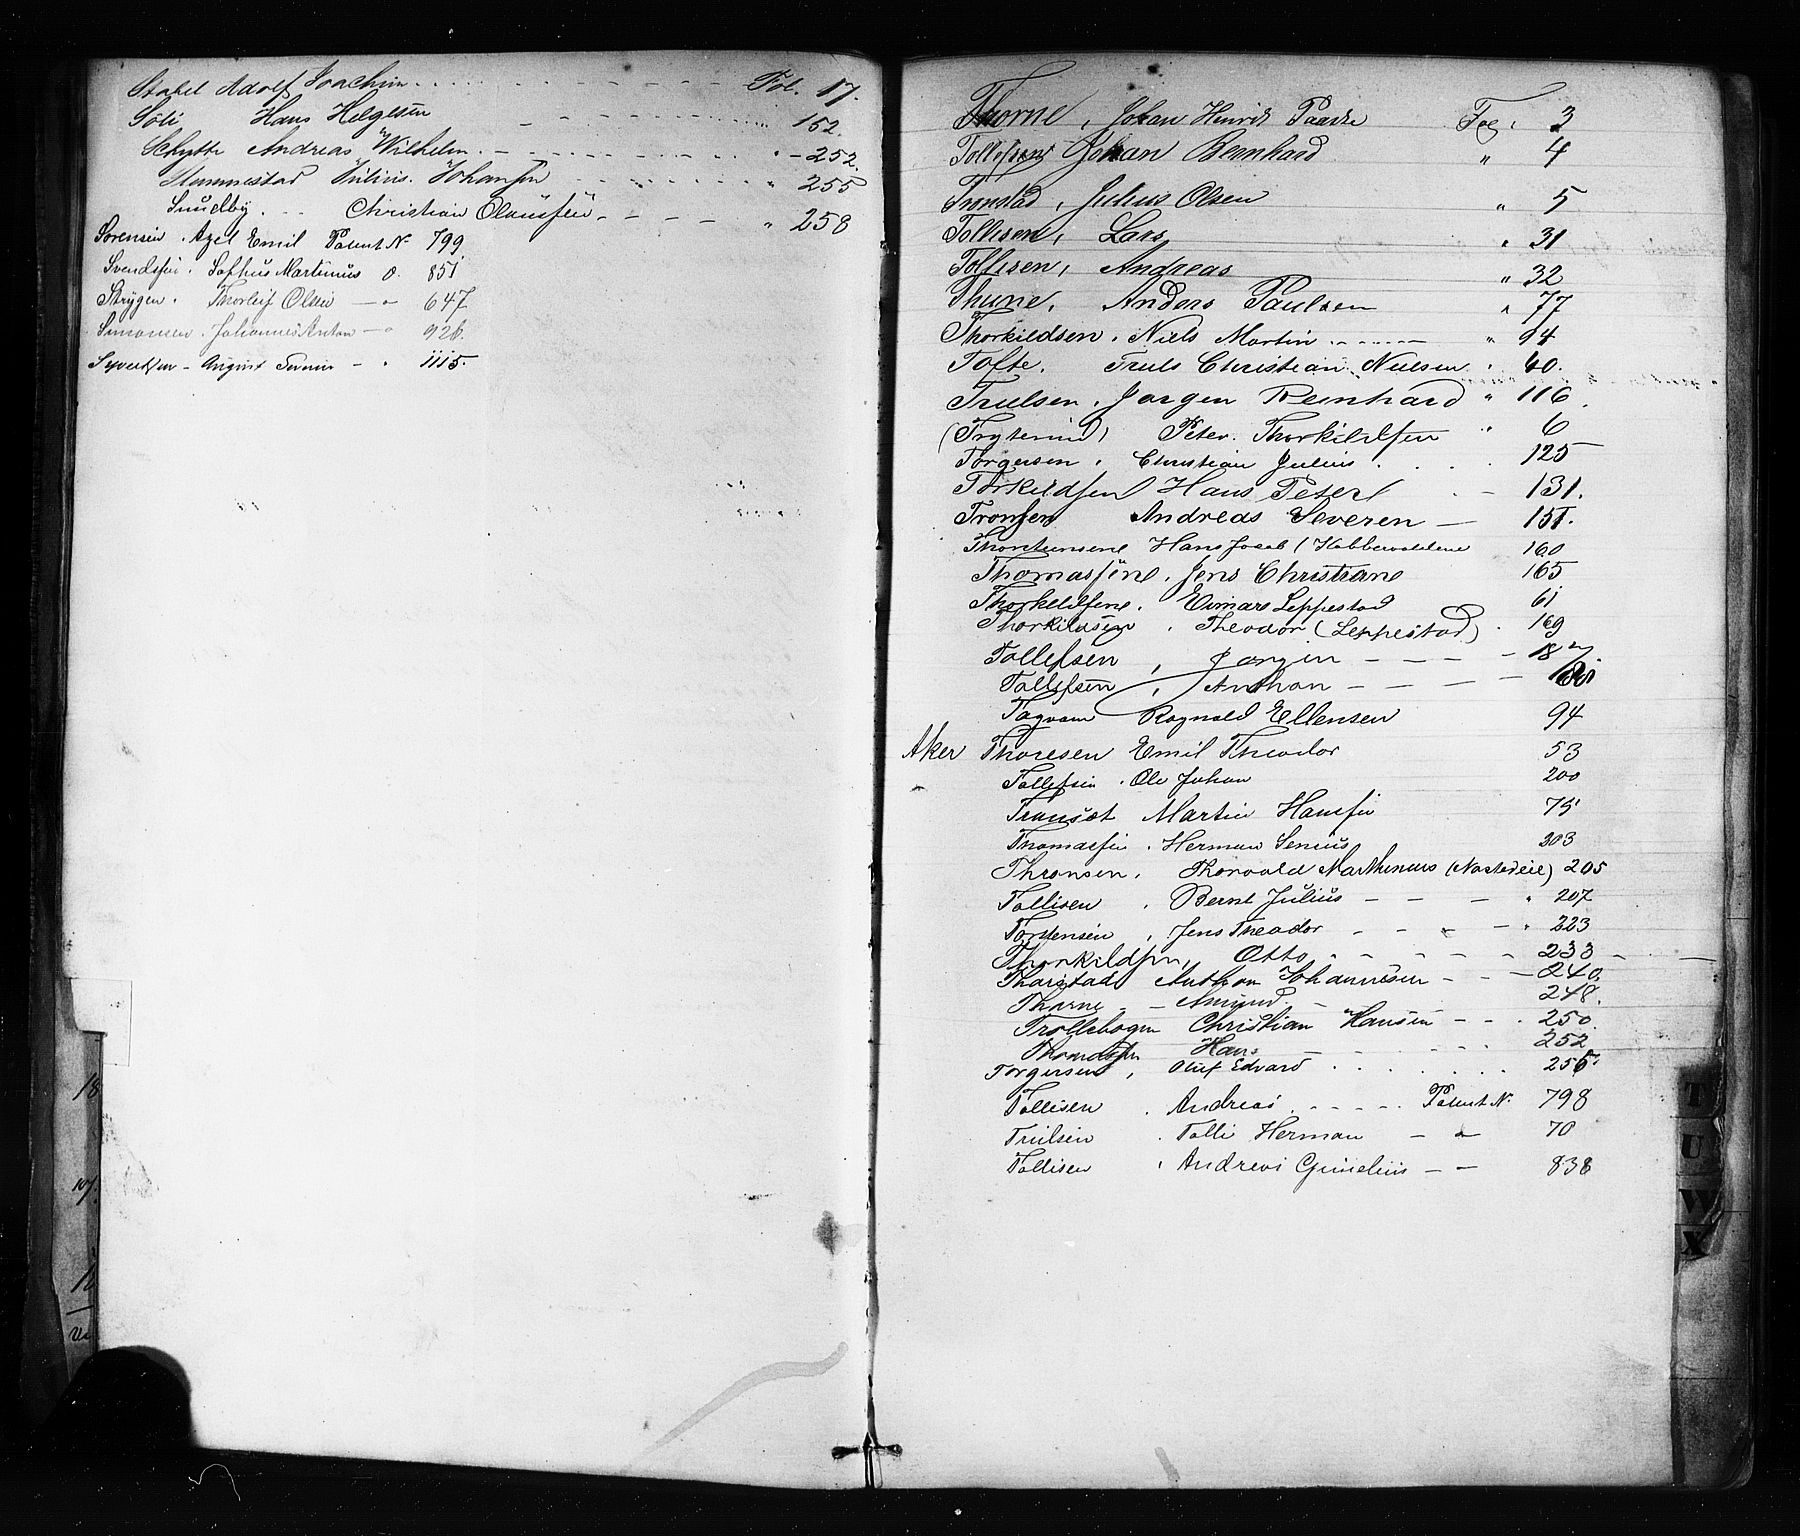 Stabel Adolf Joachim. Fol. 17.
Söli Hans Helgesen 152.
Schytte Andreas Wilhelm. 252.
Stemmestad Julius. Johansen " 255
Sundby. Christian Olaussen " 258
Sorensen. Axel Emil Patent N. 799.
Svendsen. Sofhus Martinius o. 851
Strÿgen. Thorleif Olsen — " 647
Simonsen. Johannes Anton — " 926.
Syvertsen - August Severin - . 1115.
Thorne, Johan Henrik Paaske Fol. 3
Tollefsen Johan Bernhard " 4
Tronstad, Julius Olsen " 5
Tollisen, Lars " 31
Tollisen, Andreas " 32
Thune, Anders Paulsen " 77
Thorkildsen. Niels Martin " 94
Tofte. Truls Christian Nielsen . 60.
Trulsen, Jorgen Reinhard " 116
( ) Peter. Thorkildsen " 6
Torgersen. Christian Julius . 125
Torkildsen Hans Peter - 131.
Tronsen Andreas Severen — 151.
Hans Jacob 160
Thomassen. Jens Christian 165
Thorkildsen. Einar Leppestad 61
Thorkildsen, Theodor (Leppestad) . 169
Tollefsen, Jorgen — — — 187
Tollefsen, Anthon — — —
Tagvam Ragnald Ellensen 94
Aker Thoresen Emil Theodor 53
Tollefsen. Ole Johan 200
Transet Martin Hansen 75
Thomassen. Herman Senius 203
Thronsen. Thorvald Marthinius 205
Tollisen. Bernt Julius — — — " 207
Torstensen, Jens Theodor — — — " 223
Thorkildsen, Otto 233
Thorstad Anthon Johannesen — 240.
Thorne — Amund. — 248.
Trollebogen Christian Hansen — 250
Thomassen Hans 252
Torgersen, Oluf Edvard 256
Tollisen. Andreas Patent N. 798
Trulsen. Tolli Herman — " 70
Tollisen, Andreas — — 838
T
U
W
X